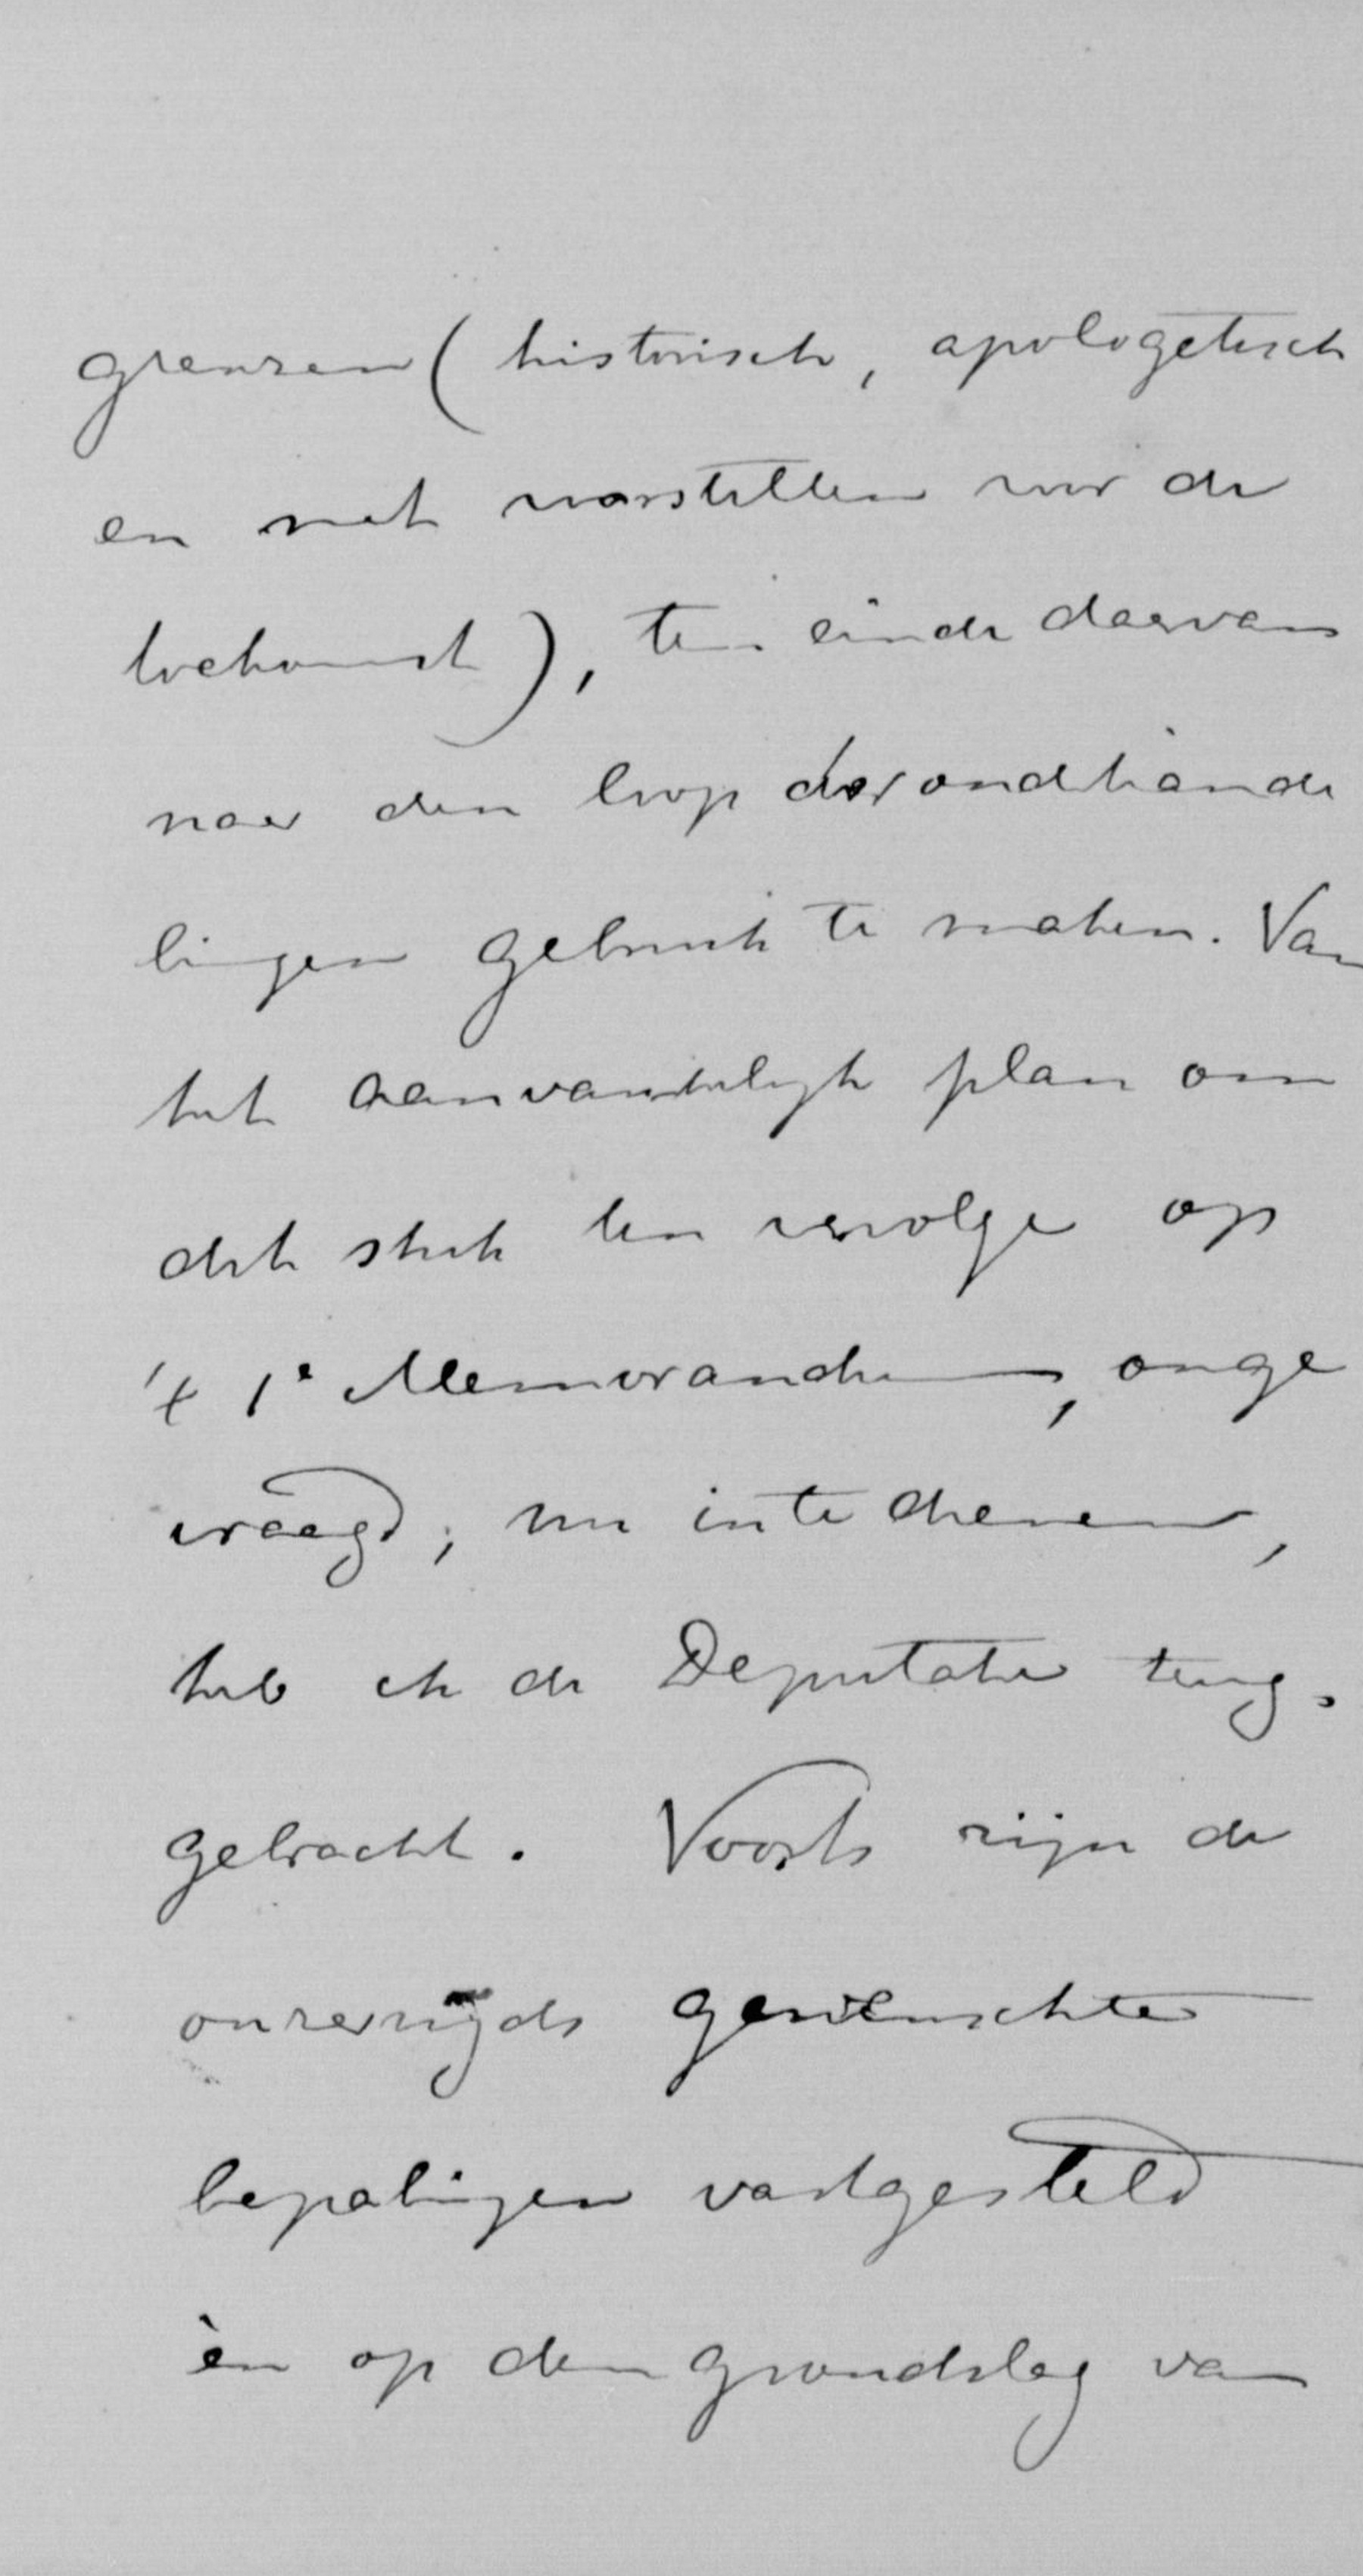 grenzen (historisch, apologetisch
en met voorstellen voor de
toekomst), ten einde daarvan
naar den loop der onderhande
lingen gebruik te maken. Van
het aanvankelijk plan om
dit stuk ten vervolge op
't 1e Memorandum, onge
vraagd, nu in te dienen,
heb ik de Deputatie terug-
gebracht. Voorts zijn de
onzerzijds gewenschte
bepalingen vastgesteld
èn op den grondslag van